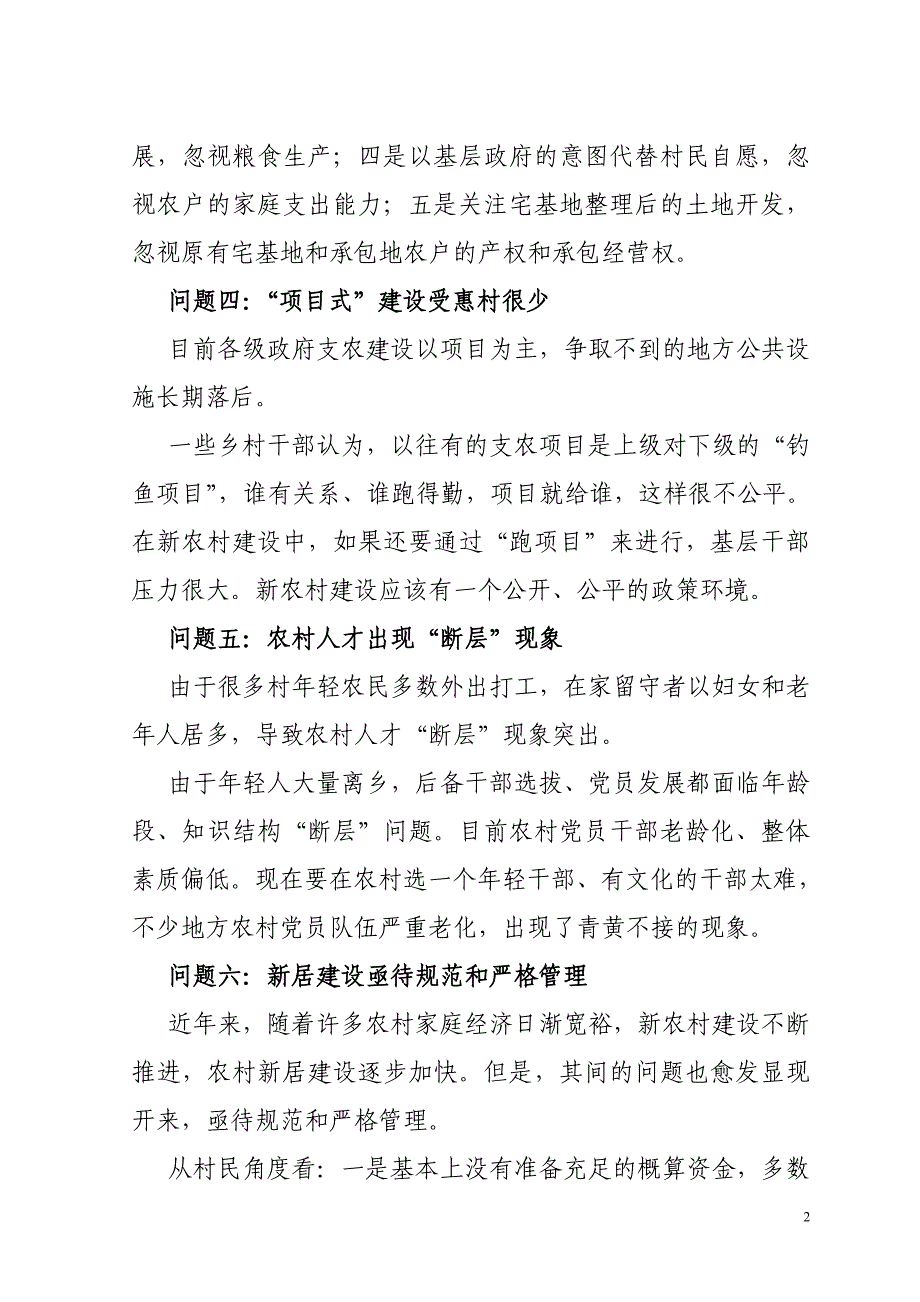 展，忽视粮食生产；四是以基层政府的意图代替村民自愿，忽
视农户的家庭支出能力；五是关注宅基地整理后的土地开发，
忽视原有宅基地和承包地农户的产权和承包经营权。
问题四：“项目式”建设受惠村很少
目前各级政府支农建设以项目为主，争取不到的地方公共设
施长期落后。
一些乡村干部认为，以往有的支农项目是上级对下级的“钓
鱼项目”，谁有关系、谁跑得勤，项目就给谁，这样很不公平。
在新农村建设中，如果还要通过“跑项目”来进行，基层干部
压力很大。新农村建设应该有一个公开、公平的政策环境。
问题五：农村人才出现“断层”现象
由于很多村年轻农民多数外出打工，在家留守者以妇女和老
年人居多，导致农村人才“断层”现象突出。
由于年轻人大量离乡，后备干部选拔、党员发展都面临年龄
段、知识结构“断层”问题。目前农村党员干部老龄化、整体
素质偏低。现在要在农村选一个年轻干部、有文化的干部太难，
不少地方农村党员队伍严重老化，出现了青黄不接的现象。
问题六：新居建设亟待规范和严格管理
近年来，随着许多农村家庭经济日渐宽裕，新农村建设不断
推进，农村新居建设逐步加快。但是，其间的问题也愈发显现
开来，亟待规范和严格管理。
从村民角度看：一是基本上没有准备充足的概算资金，多数
2